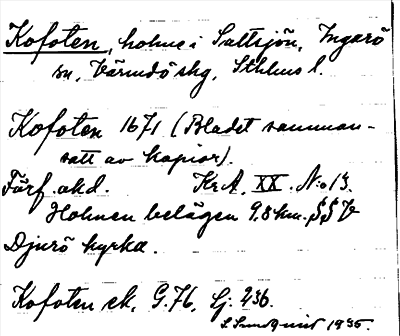 Kofoten, holme i Saltsjön, Ingarö
sn, Värmdö skg, Sthlms l.
Kofoten 1671 (Bladet samman-
satt av kopior).
Förf. akd. KrA, XX. N:o 13.
Holmen belägen 9,8 km. SSV
Djurö kyrka.
Kofoten ek, G.76, Gj: 236.
S Sundqvist 1935.